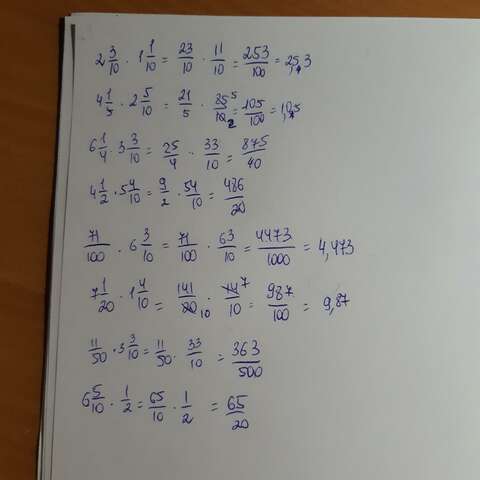 2 3/10 · 1 1/10 = 23/10 · 11/10 = 253/100 = 2,53
4 1/5 · 2 5/10 = 21/5 · 25 5/10 2 = 105/100 = 1,05
6 1/4 · 3 3/10 = 25/4 · 33/10 = 875/40
4 1/2 · 5 4/10 = 9/2 · 54/10 = 486/20
71/100 · 6 3/10 = 71/100 · 63/10 = 4473/1000 = 4,473
7 1/20 · 1 4/10 = 141/20 10 · 14 7/10 = 987/100 = 9,87
11/50 · 3 3/10 = 11/50 · 33/10 = 363/500
6 5/10 · 1/2 = 65/10 · 1/2 = 65/20